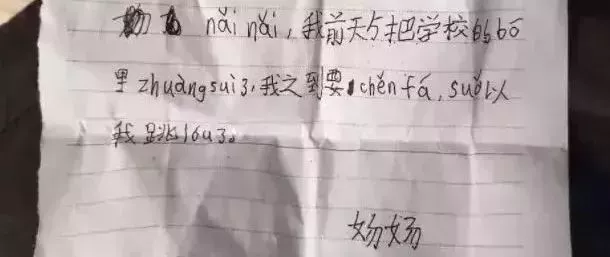 nǎi nǎi，我前天与把学校的bō
里zhuàng suì 3，我之到要chěn fá，suǒ以
我跳lóu 3。
妫妫